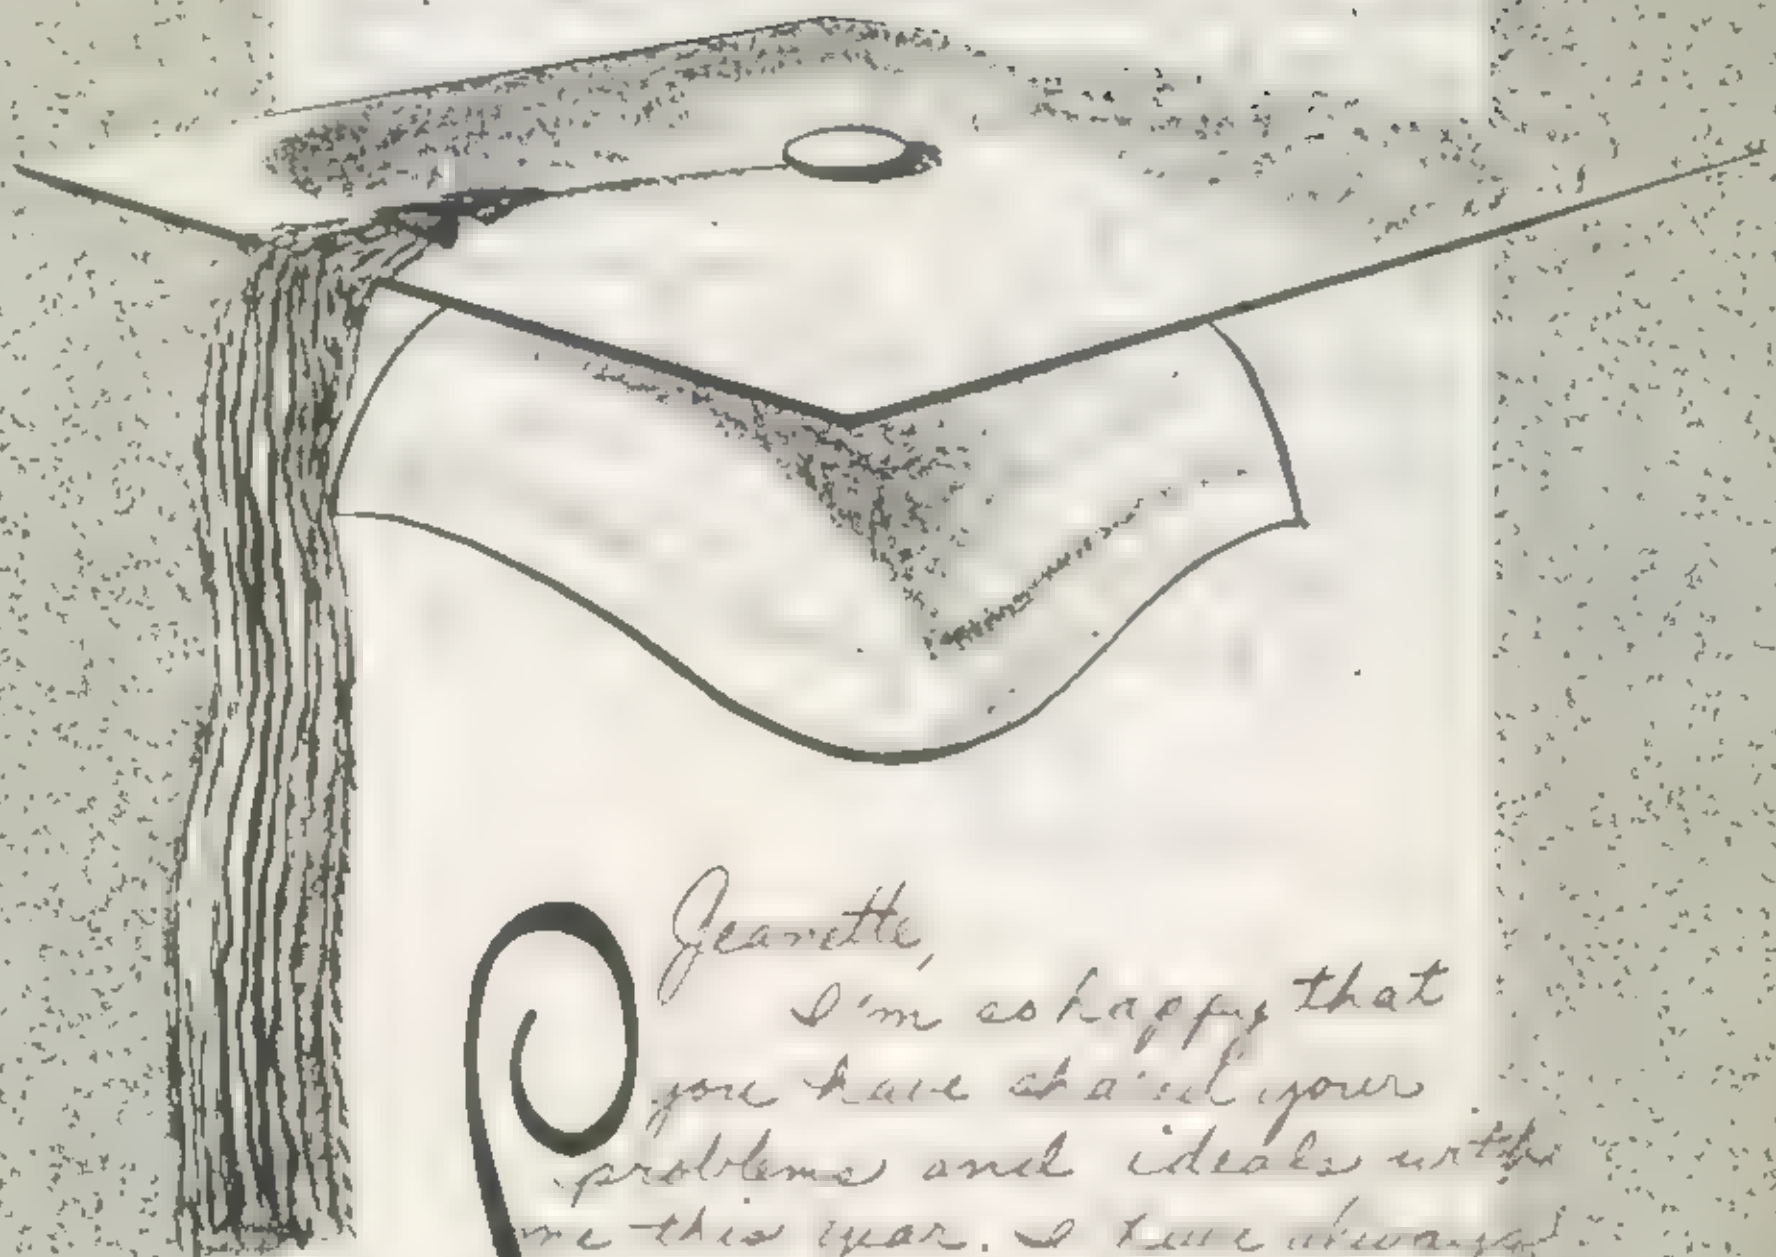 Jeanette,
I'm so happy that
you have shared your
problems and ideals with
me this year. I have always